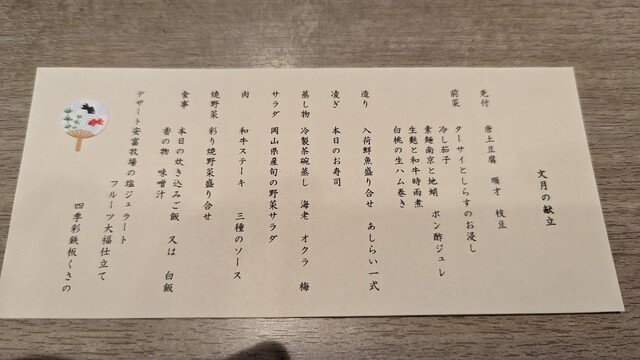 文月の献立
先付 唐土豆腐 順才 枝豆
前菜 ターサイとしらすのお浸し
冷し茄子
素麺南京と地蛸 ポン酢ジュレ
生麩と和牛時雨煮
白桃の生ハム巻き
造り 入荷鮮魚盛り合せ あしらい一式
凌ぎ 本日のお寿司
蒸し物 冷製茶碗蒸し 海老 オクラ 梅
サラダ 岡山県産旬の野菜サラダ
肉 和牛ステーキ 三種のソース
焼野菜 彩り焼野菜盛り合せ
食事 本日の炊き込みご飯 又は 白飯
香の物 味噌汁
デザート 安富牧場の塩ジェラート
フルーツ大福仕立て
四季彩鉄板くさの